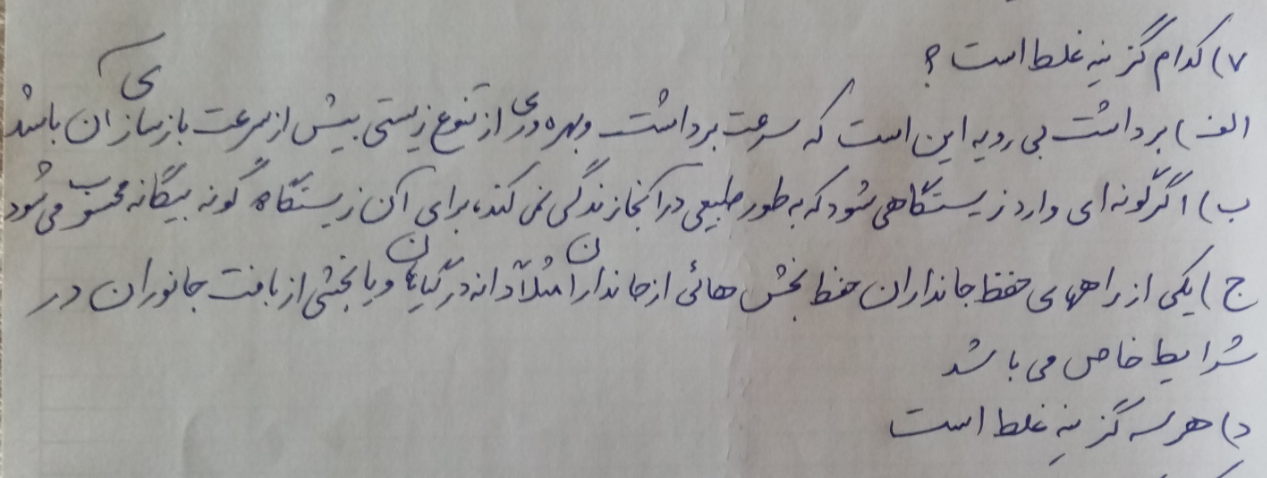 ۷) کدام گزینه غلط است ؟
الف) برداشت بی رویه این است که سرعت برداشت و بهره وری از تنوع زیستی بیش از سرعت بازسازی آن باشد
ب) اگر گونه ای وارد زیستگاهی شود که به طور طبیعی در آنجا زندگی نمی کند، برای آن زیستگاه گونه بیگانه محسوب می شود
ج) یکی از راههای حفظ جانداران حفظ بخش هائی از جانداران مثلاً دانه در گیاهان و یا بخشی از بافت جانوران در
شرایط خاص می باشد
د) هر سه گزینه غلط است